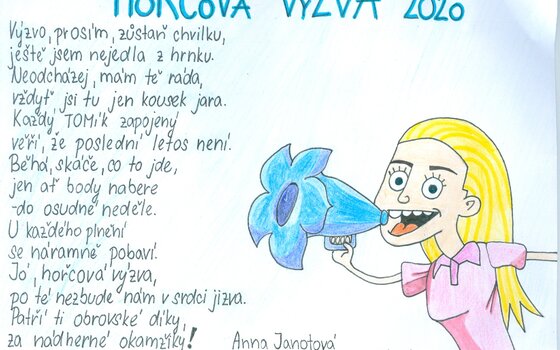 HOŘCOVÁ VÝZVA 2020
Výzvo, prosím, zůstaň chvilku,
ještě jsem nejedla z hrnku.
Neodcházej, mám tě ráda,
vždyť jsi tu jen kousek jara.
Každý TOMík zapojený
věří, že poslední letos není.
Běhá, skáče, co to jde,
jen ať body nabere
-do osudné neděle.
U každého plnění
se náramně pobaví.
Jó, hořcová výzva,
po té nezbude nám v srdci jizva.
Patří ti obrovské díky,
za nádherné okamžiky!
Anna Janotová